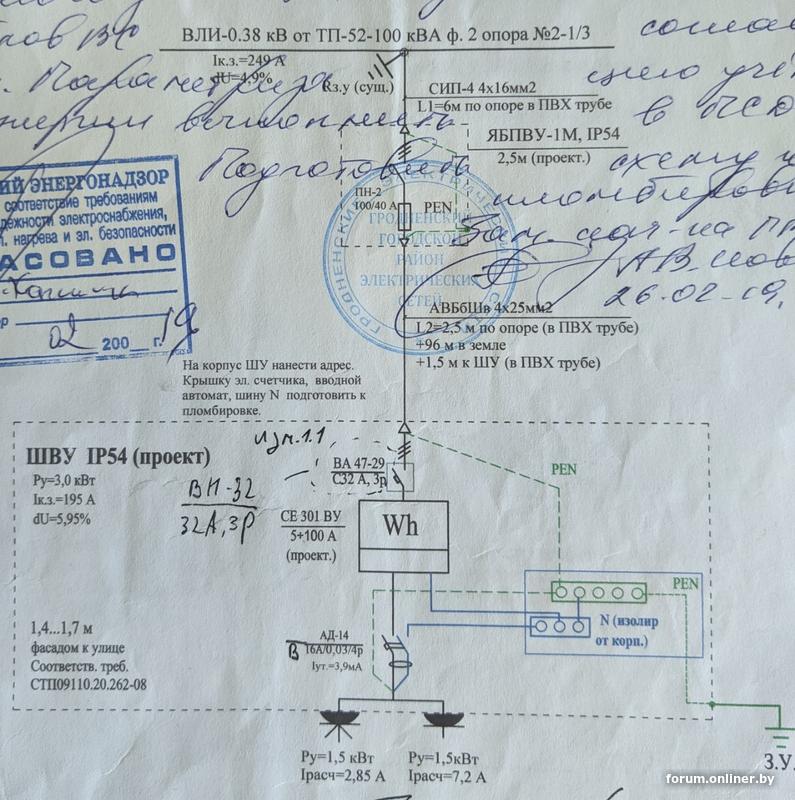 ВЛИ-0.38 кВ от ТП-52-100 кВА ф. 2 опора №2-1/3
Iк.з.=249 А
dU=4,9%
Rз.у (сущ.)
СИП-4 4х16мм2
L1=6м по опоре в ПВХ трубе
ЯБПВУ-1М, IP54
2,5м (проект.)
Подготовить схему
ПН-2
100/40 А
PEN
ГРОДНЕНСКИЙ
ГОРОДСКОЙ
РАЙОН
ЭЛЕКТРИЧЕСКИХ
СЕТЕЙ
26.02.19.
ЭНЕРГОНАДЗОР
соответствие требованиям
электроснабжения,
нагрева и эл. безопасности
АСОВАНО
02 200 г. 19
АВБбШв 4х25мм2
L2=2,5 м по опоре (в ПВХ трубе)
+96 м в земле
+1,5 м к ШУ (в ПВХ трубе)
На корпус ШУ нанести адрес.
Крышку эл. счетчика, вводной
автомат, шину N подготовить к
пломбировке.
ШВУ IP54 (проект)
Ру=3,0 кВт
Iк.з.=195 А
dU=5,95%
изм.1.1
ВА 47-29
С32 А, 3р
ВН-32
32А, 3Р
PEN
СЕ 301 ВУ
5÷100 А
(проект.)
Wh
PEN
N (изолир
от корп.)
1,4...1,7 м
фасадом к улице
Соответств. треб.
СТП09110.20.262-08
АД-14
В 16А/0,03/4р
Iут.=3,9мА
Ру=1,5 кВт
Iрасч=2,85 А
Ру=1,5кВт
Iрасч=7,2 А
З.У.
forum.onliner.by